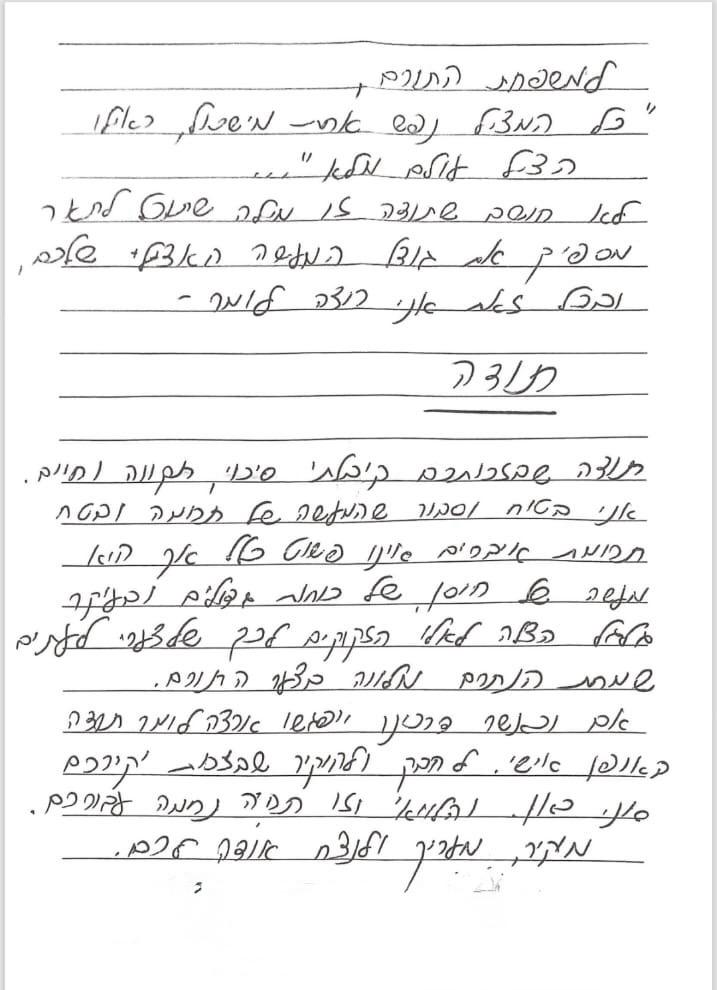 למשפחת התורם,
"כל המציל נפש אחת מישראל, כאילו
הציל עולם מלא"...
לא חושב שתודה זו מילה שתוכל לתאר
מספיק את גודל המעשה האצילי שלכם,
ובכל זאת אני רוצה לומר -
תודה
תודה שבזכותכם קיבלתי סיכוי, תקווה וחיים.
אני בטוח וסבור שהמעשה של תרומה ובטח
תרומת איברים אינו פשוט כלל אך הוא
מעשה של חוסן, של כוחות גדולים ובעיקר
גלגל הצלה לאלו הזקוקים לכך שלצערי לעתים
שמחת הנתרם מלווה בצער התורם.
אם וכאשר דרכינו ייפגשו ארצה לומר תודה
באופן אישי. לחבק ולהוקיר שבזכות יקירכם
אני כאן. והלוואי וזו תהיה נחמה עבורכם.
מוקיר, מעריך ולנצח אודה לכם.